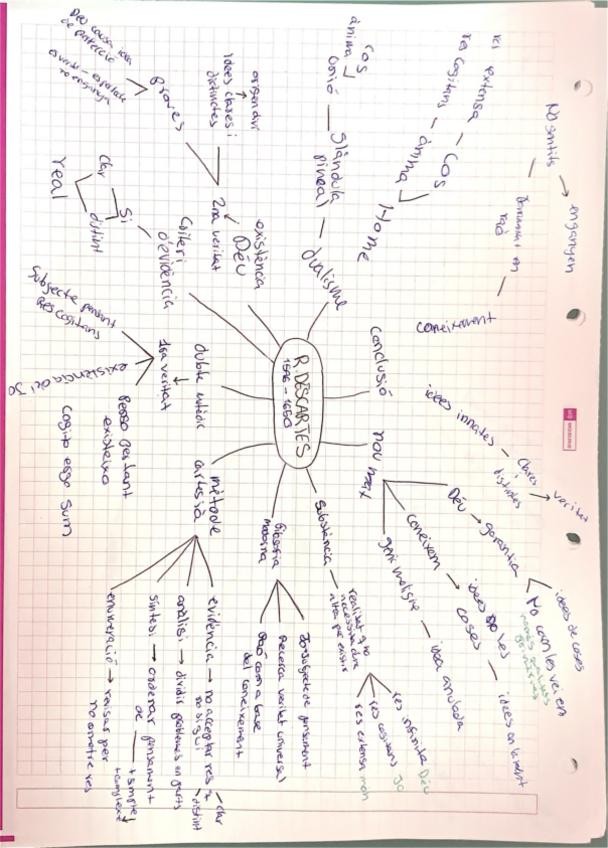 R. DESCARTES
1596 - 1650
Conclusió
coneixement
No sentits
enganyen
idees innates
clares i
distintes
veritat
nou marc
Déu
garantia
idees de coses
No com les veiem
coneixem
idees
coses
idees en la ment
geni maligne
idea anulada
Substància
realitat q no
necessita d'una
altra per existir
res infinita Déu
res cogitans Jo
res extensa món
filosofia
moderna
Jo-subjecte de pensament
Recerca veritat universal
Raó com a base
del coneixement
mètode
cartesià
evidència
no acceptar res q
no sigui
clar
distint
anàlisi
dividir problemes en parts
síntesi
ordenar pensament
de
+ simple
+ complexe
enumeració
revisar per
no ometre res
dubte metòdic
1ra veritat
Subjecte pensant
Res cogitans
existència del Jo
Penso per tant
existeixo
Cogito ergo sum
Criteri
d'evidència
Si
clar
distint
real
existència
Déu
2na veritat
idees clares i
distintes
origen diví
proves
Déu causa idea
de perfecció
dualisme
Home
Cos
res extensa
ànima
res cogitans
Glàndula
pineal
Unió
cos
ànima